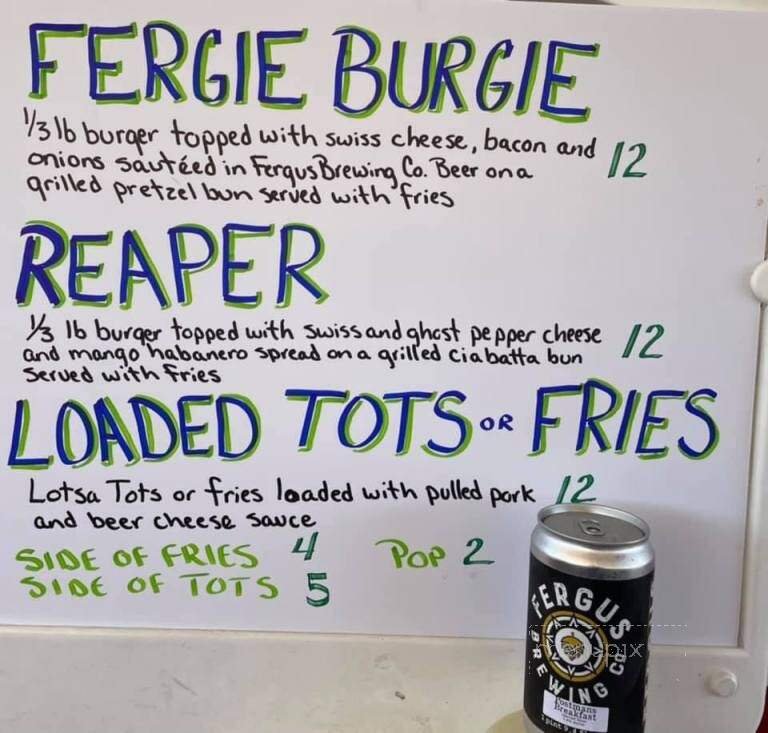 FERGIE BURGIE
1/3 lb burger topped with swiss cheese, bacon and
onions sautéed in Fergus Brewing Co. Beer on a 12
grilled pretzel bun served with fries
REAPER
1/3 lb burger topped with swiss and ghost pepper cheese
and mango habanero spread on a grilled ciabatta bun 12
served with fries
LOADED TOTS OR FRIES
Lotsa Tots or fries loaded with pulled pork 12
and beer cheese sauce
SIDE OF FRIES 4 POP 2
SIDE OF TOTS 5
FERGUS
BREWING CO
Postmans
Breakfast